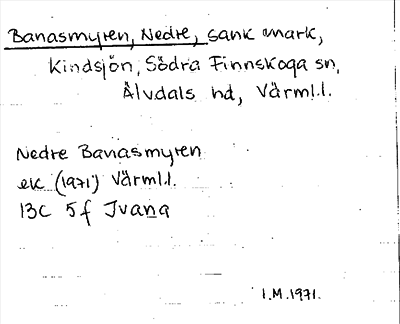 Banasmyren, Nedre, sank mark,
Kindsjön, Södra Finnskoga sn,
Älvdals hd, Värml.l.
Nedre Banasmyren
ek (1971) Värml.l.
13C 5f Ivana
I.M.1971.